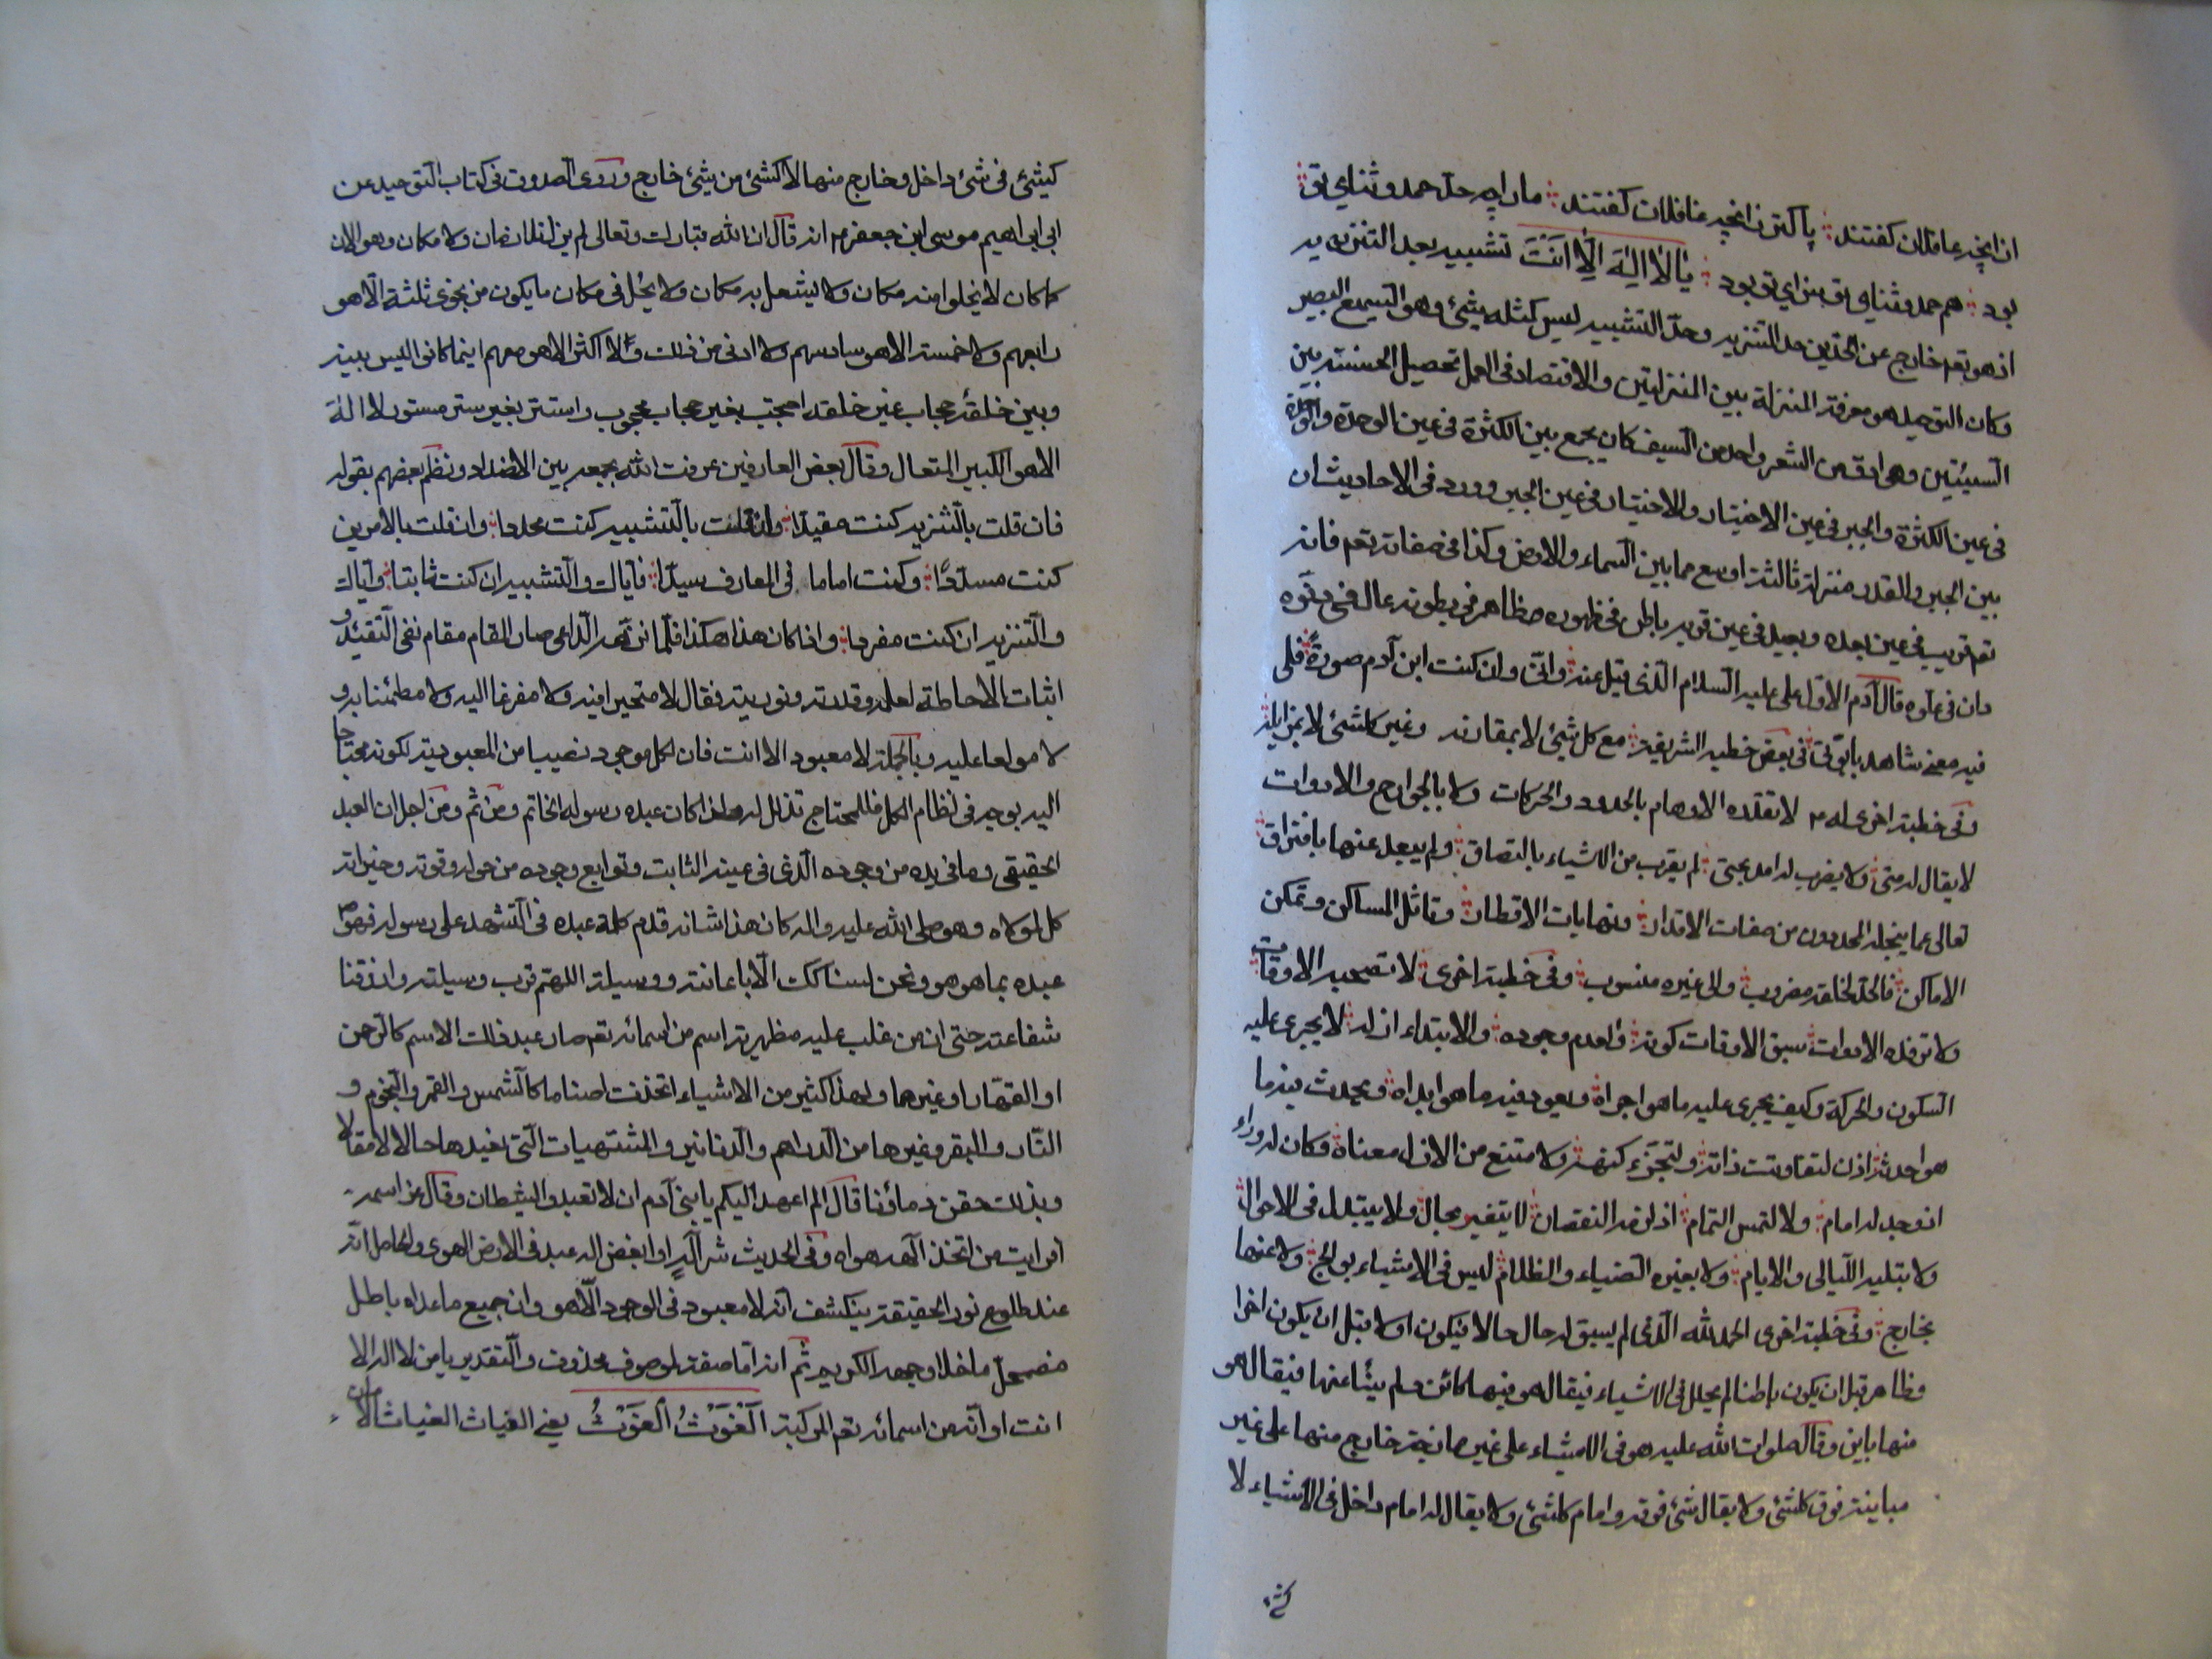 از آنچه عاقلان گفتند ∴ پاکتر ز آنچه غافلان گفتند ∴ ما را چه حد حمد و ثنای تو
بود ∴ هم حمد و ثنای تو سزای تو بود ∴ یا لا اله الا انت تشبیه بعد التنزیه
اذ هو تعه خارج عن الحدین حد التنزیه وحد التشبیه لیس کمثله شیٔ وهو السمیع البصیر
وکان التوحید هو معرفة المنزلة بین المنزلتین والاقتصاد فی العمل تحصیل الحسنة بین
السیئتین وهی ادق من الشعر واحد من السیف کان یجمع بین الکثرة فی عین الوحدة والوحدة
فی عین الکثرة والجبر فی عین الاختیار والاختیار فی عین الجبر وورد فی الاحادیث ان
بین الجبر والقدر منزلة ثالثة اوسع مما بین السماء والارض وکذا فی صفاته تعه فانه
تعه قریب فی عین بعده وبعید فی عین قربه باطن فی ظهوره ظاهر فی بطونه عال فی دنوه
دان فی علوه قال آدم الاول علی علیه السلام الذی قیل عنه وانی وان کنت ابن آدم صورة فلی
فیه معنی شاهد بابوتی فی بعض خطبه الشریفة مع کل شیٔ لا بمقارنه وغیر کل شیٔ لا بمزایلة
وفی خطبة اخری له ۴ لا تقدره الاوهام بالحدود والحرکات ولا بالجوارح والادوات
لا یقال له متی ولا یضرب له امد بحتی لم یقرب من الاشیاء بالتصاق ولم یبعد عنها بافتراق
تعالی عما ینحله المحددون من صفات الاقدار ونهایات الاقطار وتاثل المساکن وتمکن
الاماکن فالحد لخلقه مضروب والی غیره منسوب وفی خطبة اخری لا تصحبه الاوقات
ولا ترفده الادوات سبق الاوقات کونه والعدم وجوده والابتداء ازله لا یجری علیه
السکون والحرکة وکیف یجری علیه ما هو اجراه ویعود فیه ما هو ابداه ویحدث فیه ما
هو احدثه اذن لتفاوتت ذاته ولتجزء کنهه ولامتنع من الازل معناه وکان له وراء
اذ وجد له امام ولا التمس التمام اذ لزمه النقصان لا یتغیر بحال ولا یتبدل فی الاحوال
ولا تبلیه اللیالی والایام ولا یغیره الضیاء والظلام لیس فی الاشیاء بوالج ولا عنها
بخارج وفی خطبة اخری الحمد لله الذی لم یسبق له حال حالا فیکون اولا قبل ان یکون اخرا
وظاهر قبل ان یکون باطنا لم یحلل فی الاشیاء فیقال هو فیها کائن ولم ینأ عنها فیقال هو
منها باین وقال صلوات الله علیه هو فی الاشیاء علی غیر ممازجة خارج منها علی غیر
مباینة فوق کل شیٔ ولا یقال شیٔ فوقه وامام کل شیٔ ولا یقال له امام داخل فی الاشیاء لا
کشیٔ فی شیٔ داخل وخارج منها لا کشیٔ من شیٔ خارج وروی الصدوق فی کتاب التوحید عن
ابی ابراهیم موسی ابن جعفر ۴ انه قال ان الله تبارک وتعالی لم یزل بلا زمان ولا مکان وهو الان
کما کان لا یخلوا منه مکان ولا یشتغل به مکان ولا یحل فی مکان ما یکون من نجوی ثلثة الا هو
رابعهم ولا خمسة الا هو سادسهم ولا ادنی من ذلک ولا اکثر الا هو معهم اینما کانوا لیس بینه
وبین خلقه حجاب غیر خلقه احتجب بغیر حجاب محجوب واستتر بغیر ستر مستور لا اله
الا هو الکبیر المتعال وقال بعض العارفین عرفت الله بجمعه بین الاضداد ونظم بعضهم بقوله
فان قلت بالتنزیه کنت مقیدا وان قلت بالتشبیه کنت محددا وان قلت بالامرین
کنت مسددا وکنت اماما فی المعارف سیدا فایاک والتشبیه ان کنت ثانیا وایاک
والتنزیه ان کنت مفردا واذا کان هذا هکذا فلما نزهه الداعی صار المقام مقام نفی التقیید و
اثبات الاحاطة لعلمه وقدرته ونوریته فقال لا متحیرا فیه ولا مفرغا الیه ولا مطمئنا به و
لا مولعا علیه وبالجملة لا معبود الا انت فان لکل موجود نصیبا من المعبودیة لکونه محتاجا
الیه بوجه فی نظام الکل فللمحتاج تذلل له ولذا کان عبده رسوله الخاتم ومن ثم ومن اجل ان العبد
الحقیقی وما فی یده من وجوده الذی فی عینه الثابت وتوابع وجوده من حوله وقوته وخیراته
کل لمولاه وهو صلی الله علیه واله کان هذا شانه قدم کلمة عبده فی التشهد علی رسوله فهو ص
عبده بما هو هو ونحن لسنا کک الا باعانته ووسیلته اللهم قرب وسیلته وارزقنا
شفاعته حتی ان من غلب علیه مظهریة اسم من اسمائه تعه صار عبد ذلک الاسم کالرحمن
او القهار او غیرهما ولهذا کثیر من الاشیاء اتخذت اصناما کالشمس والقمر والنجوم و
النار والبقر وغیرها من الدراهم والدنانیر والمشتهیات التی نعبدها حالا لا مقالا
وبذلک حقن دمائنا قال الم اعهد الیکم یا بنی آدم ان لا تعبدوا الشیطان وقال عز اسمه
افرایت من اتخذ الهه هواه وفی الحدیث شر اله او ابغض اله عبد فی الارض الهوی والحاصل انه
عند طلوع نور الحقیقة ینکشف انه لا معبود فی الوجود الا هو وان جمیع ما عداه باطل
مضمحل ما خلا وجهه الکریم ثم انه اما صفة لموصوف محذوف والتقدیر یا من لا اله الا
انت او انه من اسمائه تعه المرکبة الغوث الغوث یعنی الغیاث الغیاث